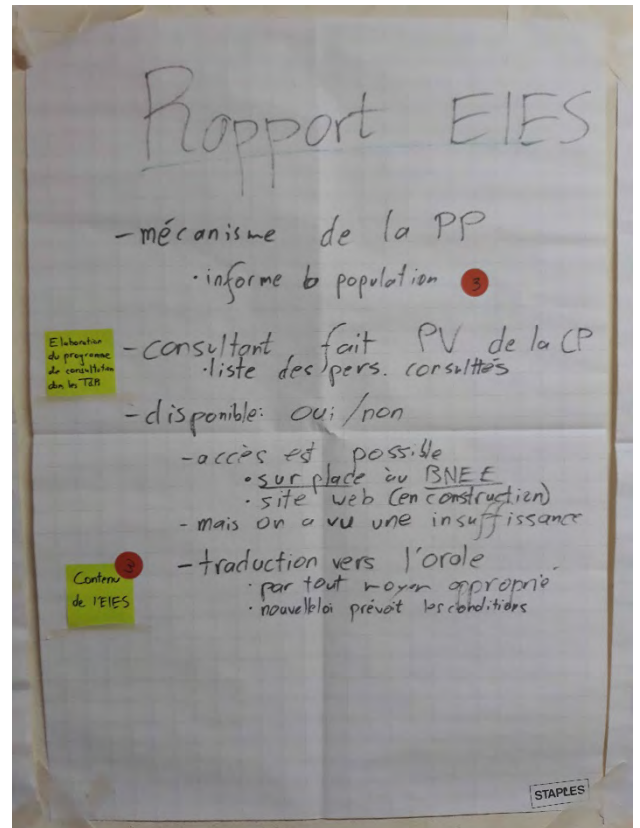 Rapport EIES
- mécanisme de la PP
· informe la population 3
Elaboration
du programme
de consultation
dans les TdR
- consultant fait PV de la CP
· liste des pers. consultés
- disponible: oui/non
- accès est possible
· sur place au BNEE
· site web (en construction)
- mais on a vu une insuffissance
Contenu
de l'EIES
- traduction vers l'orale
· par tout moyen approprié
· nouvelle loi prévoit les conditions
STAPLES